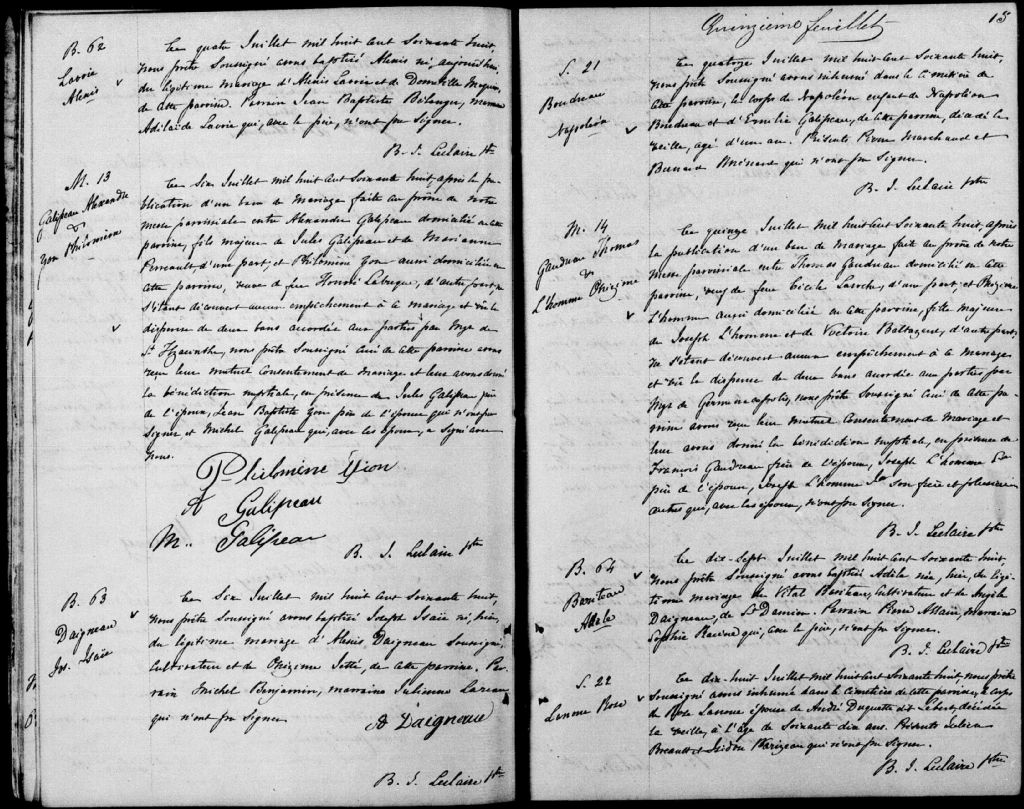 B. 62
Lavoie
Alexis
Le quatre Juillet mil huit cent Soixante huit,
Nous prêtre Soussigné avons baptisé Alexis né, aujourd'hui,
du légitime mariage d'Alexis Lavoie et de Domitille
de cette paroisse. Parrain Jean Baptiste Bélanger, marraine
Adélaïde Lavoie qui, avec le père, n'ont pu Signer.
B. J. Leclaire Ptre
M. 13
Galipeau Alexandre
&
Yon Philomène
Le Six Juillet mil huit cent Soixante huit, après la pu-
blication d'un banc de Mariage faite au prône de notre
messe paroissiale entre Alexandre Galipeau domicilié en cette
paroisse, fils majeur de Jules Galipeau et de Marianne
Perreault d'une part, et Philomène Yon aussi domiciliée en
cette paroisse, veuve de feu Honoré Labrèque, d'autre part, ne
S'étant découvert aucun empêchement à ce mariage et vu la
dispense de deux bans accordée aux parties par Mgr de
St Hyacinthe, nous prêtre Soussigné Curé de cette paroisse avons
reçu leur mutuel Consentement de mariage et leur avons donné
la bénédiction nuptiale, en présence de Jules Galipeau père
de l'époux, Jean Baptiste Yon père de l'épouse qui n'ont pu
Signer et Michel Galipeau qui, avec les époux, a Signé avec
nous.
Philomène Yion
A Galipeau
M. Galipeau
B. J. Leclaire Ptre
B. 63
Daigneau
Jos. Isaïe
Le Six Juillet mil huit cent Soixante huit,
Nous prêtre Soussigné avons baptisé Joseph Isaïe né, hier,
du légitime mariage d'Alexis Daigneau Soussigné,
Cultivateur et de Onézime Jetté, de cette paroisse. Par-
rain Michel Benjamin, marraine Julienne Lareau
qui n'ont pu Signer
A Daigneau
B. J. Leclaire Ptre
Quinzième feuillet
15
S. 21
Boudreau
Napoléon
Le quatorze Juillet mil huit cent Soixante huit,
Nous prêtre Soussigné avons inhumé dans le Cimetière de
cette paroisse, le corps de Napoléon enfant de Napoléon
Boudreau et d'Emélie Galipeau, de cette paroisse, décédé la
veille, agé d'un an. Présents Pierre Marchand et
Bernard Ménard qui n'ont pu Signer.
B. J. Leclaire ptre
M. 14
Gaudreau Thomas
&
L'homme Onézime
Le quinze Juillet mil huit cent Soixante huit, après
la publication d'un ban de mariage fait au prône de notre
Messe paroissiale entre Thomas Gaudreau domicilié en cette
paroisse, veuf de feue Cécile Laroche, d'une part; et Onézime
L'homme aussi domiciliée en cette paroisse, fille majeure
de Joseph L'homme et de Victoire Baltazare, d'autre part,
Ne S'étant découvert aucun empêchement à ce mariage
et vu la dispense de deux bans accordée aux parties par
Mgr de nous prêtre Soussigné Curé de cette pa-
roisse avons reçu leur mutuel Consentement de Mariage et
leur avons donné la bénédiction nuptiale, en présence de
François Gaudreau frère de l'époux, Joseph L'homme
père de l'épouse, Joseph L'homme fils son frère et plusieurs
autres qui, avec les époux, n'ont pu Signer.
B. J. Leclaire Ptre
B. 64
Bariteau
Adèle
Le dix-Sept Juillet mil huit cent Soixante huit,
Nous prêtre Soussigné avons baptisé Adèle née, hier, du légi-
time mariage de Vital Bariteau, Cultivateur et de Angèle
Daigneau, de St Damien. Parrain Pierre Allain, marraine
Sophie Racine qui, avec le père, n'ont pu Signer.
B. J. Leclaire Ptre
S. 22
Rose
Le dix-huit Juillet mil huit cent Soixante huit, nous prêtre
Soussigné avons inhumé dans le Cimetière de cette paroisse, le corps
de Rose épouse de André Duquette dit Lebert, décédée
la veille, à l'âge de Soixante dix ans. Présents Julien
Breault et Isidore Parizeau qui n'ont pu Signer.
B. J. Leclaire Ptre